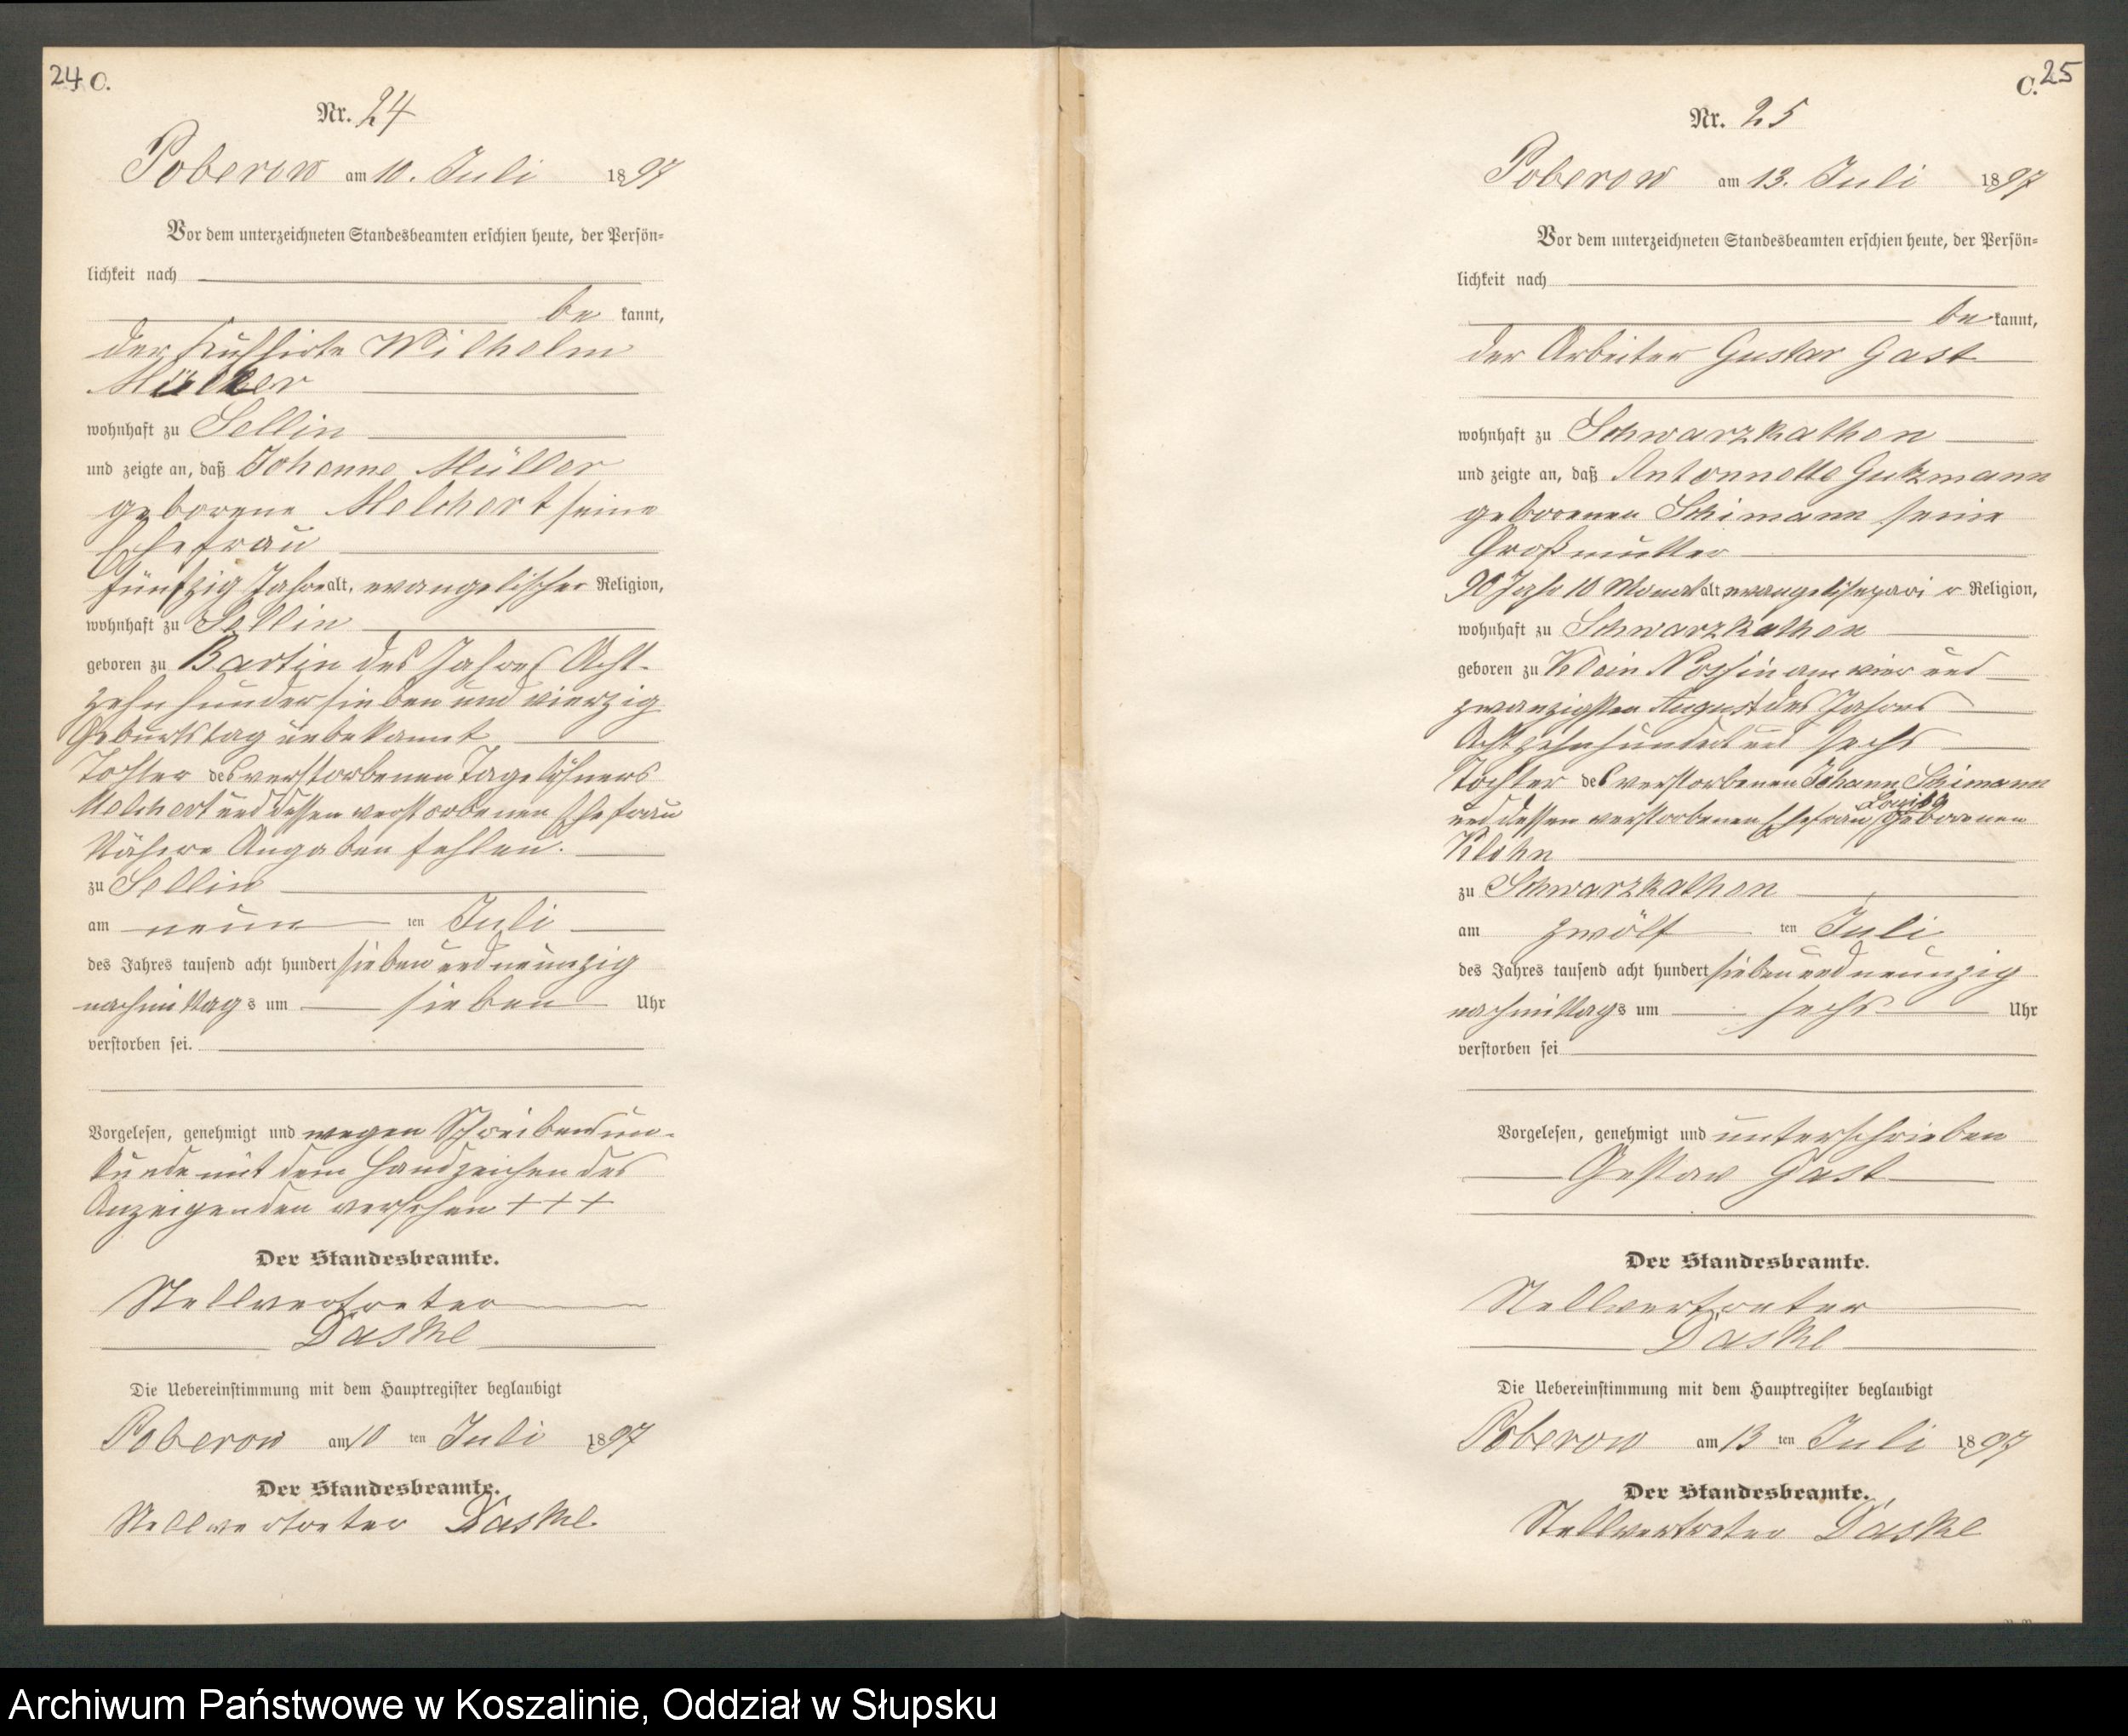 24 C.
Nr. 24
Poberow am 10. Juli 1897
Vor dem unterzeichneten Standesbeamten erschien heute, der Persön-
lichkeit nach
be kannt,
der Kuhhirte Wilhelm
Müller
wohnhaft zu Sellin
und zeigte an, daß Johanne Müller
geborene Melchert seine
Ehefrau
fünfzig Jahre alt, evangelischer Religion,
wohnhaft zu Sellin
geboren zu Bartin des Jahres Acht-
zehnhundert sieben und vierzig
Geburtstag unbekannt
Tochter des verstorbenen Tagelöhners
Melchert und dessen verstorbenen Ehefrau
Nähere Angaben fehlen.
zu Sellin
am neun ten Juli
des Jahres tausend acht hundert sieben und neunzig
nachmittags um sieben Uhr
verstorben sei.
Vorgelesen, genehmigt und wegen Schreibensun-
kunde mit dem Handzeichen des
Anzeigenden versehen + + +
Der Standesbeamte.
Stellvertreter
Daske
Die Uebereinstimmung mit dem Hauptregister beglaubigt
Poberow am 10 ten Juli 1897
Der Standesbeamte.
Stellvertreter Daske
C. 25
Nr. 25
Poberow am 13. Juli 1897
Vor dem unterzeichneten Standesbeamten erschien heute, der Persön-
lichkeit nach
be kannt,
der Arbeiter Gustav Gast
wohnhaft zu Schwarzkathen
und zeigte an, daß Antonnette Gutzmann
geborenen Schimann seine
Großmutter
90 Jahr 10 Monat alt, Religion,
wohnhaft zu Schwarzkathen
geboren zu Klein Nossin am vier und
zwanzigsten August des Jahres
Achtzehnhundert und sechs
Tochter des verstorbenen Johann Schimann
und dessen verstorbenen Ehefrau Louise geborenen
Klohn
zu Schwarzkathen
am zwölf ten Juli
des Jahres tausend acht hundert sieben und neunzig
nachmittags um sechs Uhr
verstorben sei
Vorgelesen, genehmigt und unterschrieben
Gustav Gast
Der Standesbeamte.
Stellvertreter
Daske
Die Uebereinstimmung mit dem Hauptregister beglaubigt
Poberow am 13 ten Juli 1897
Der Standesbeamte.
Stellvertreter Daske
Archiwum Państwowe w Koszalinie, Oddział w Słupsku